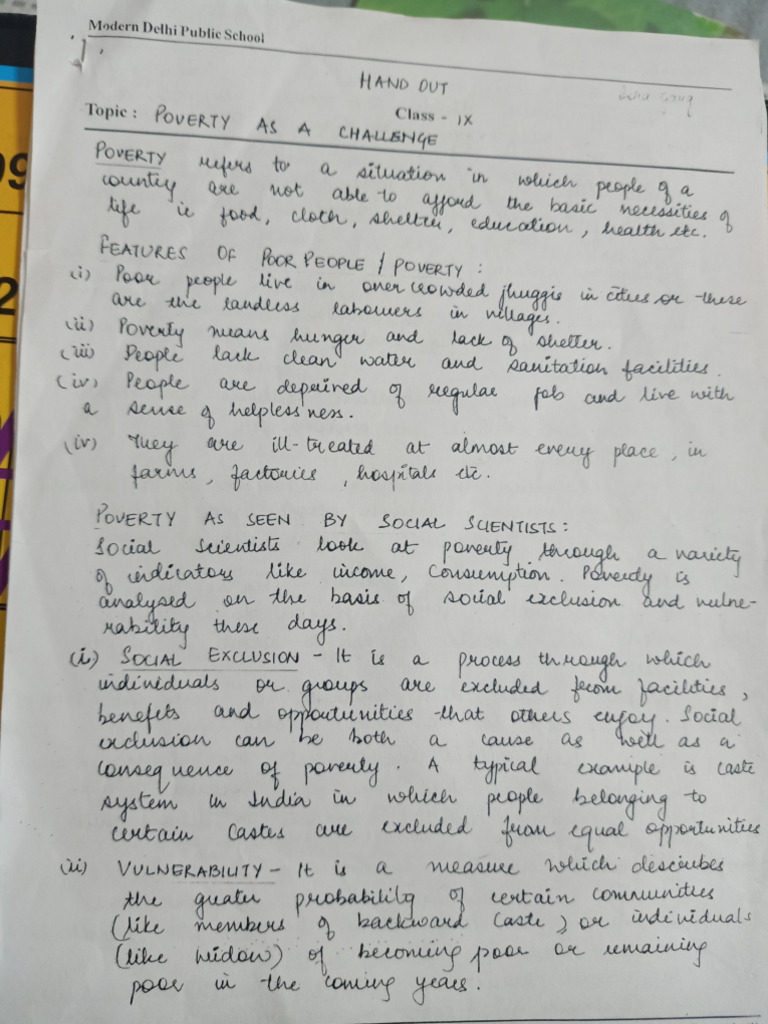 Modern Delhi Public School
HAND OUT
Topic : POVERTY AS A CHALLENGE Class - IX
POVERTY refers to a situation in which people of a
country are not able to afford the basic necessities of
life ie food, cloth, shelter, education, health etc.
FEATURES OF POOR PEOPLE / POVERTY :
(i) Poor people live in overcrowded jhuggis in cities or these
are the landless labourers in villages.
(ii) Poverty means hunger and lack of shelter.
(iii) People lack clean water and sanitation facilities.
(iv) People are deprived of regular job and live with
a sense of helplessness.
(iv) They are ill-treated at almost every place, in
farms, factories, hospitals etc.
POVERTY AS SEEN BY SOCIAL SCIENTISTS :
Social Scientists look at poverty through a variety
of indicators like income, Consumption. Poverty is
analysed on the basis of social exclusion and vulne-
rability these days.
(i) SOCIAL EXCLUSION - It is a process through which
individuals or groups are excluded from facilities,
benefits and opportunities that others enjoy. Social
exclusion can be both a cause as well as a
consequence of poverty. A typical example is caste
system in India in which people belonging to
certain castes are excluded from equal opportunities
(ii) VULNERABILITY - It is a measure which describes
the greater probability of certain communities
(like members of backward caste) or individuals
(like widow) of becoming poor or remaining
poor in the coming years.